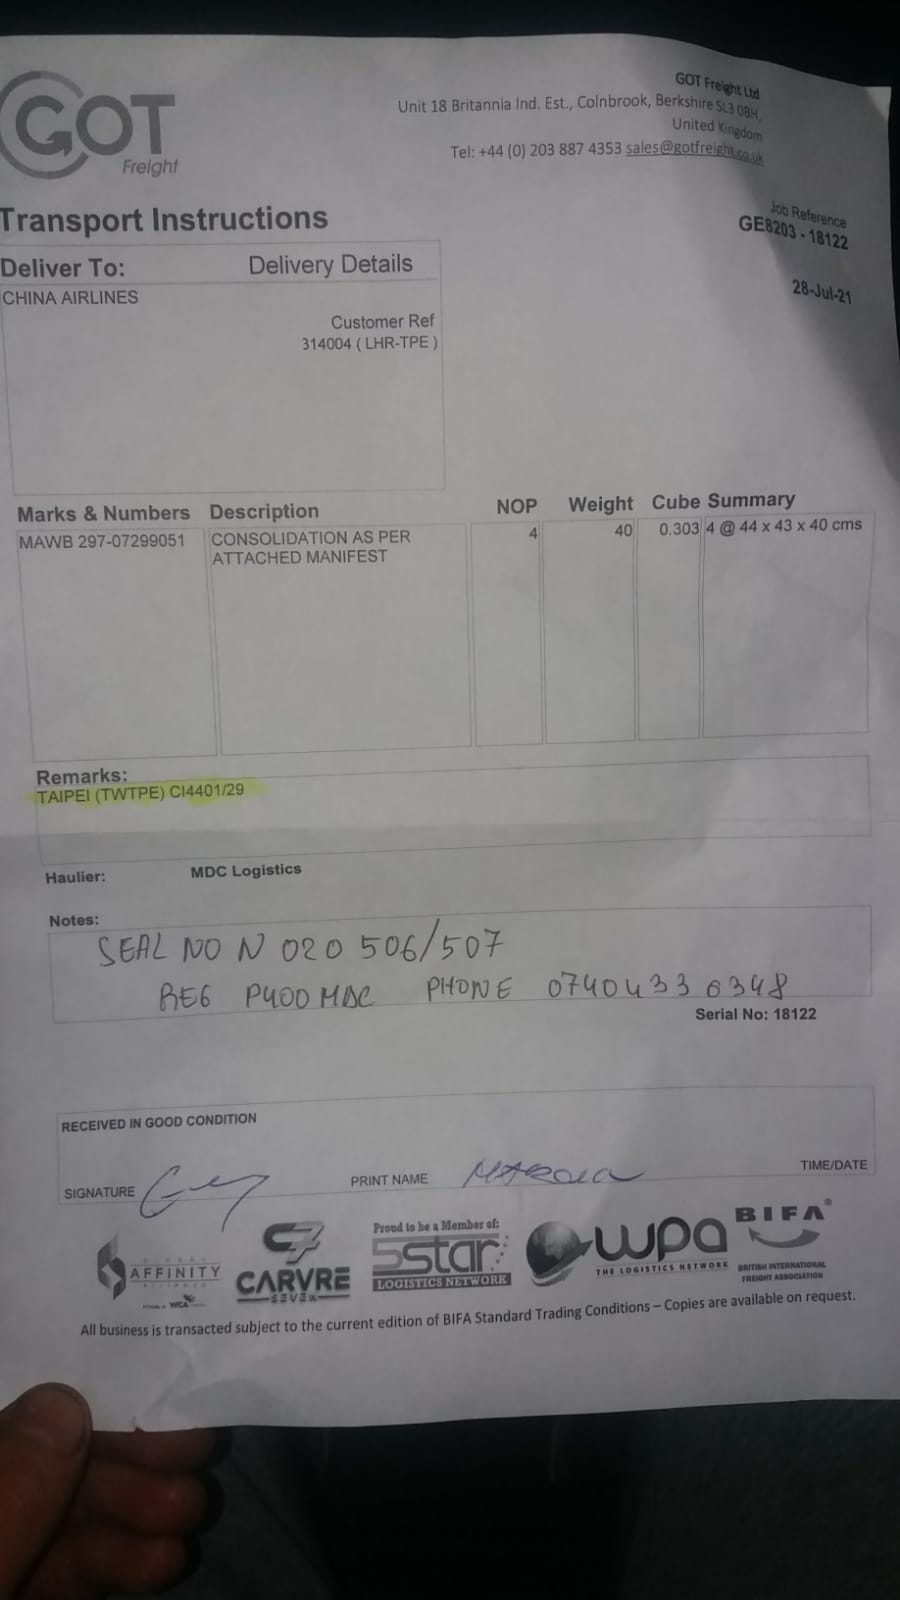 GOT
Freight
GOT Freight Ltd
Unit 18 Britannia Ind. Est., Colnbrook, Berkshire SL3 0BH,
United Kingdom
Tel: +44 (0) 203 887 4353 sales@gotfreight.co.uk
Transport Instructions
Job Reference
GE8203 - 18122
28-Jul-21
Deliver To: Delivery Details
CHINA AIRLINES
Customer Ref
314004 ( LHR-TPE )
Marks & Numbers Description NOP Weight Cube Summary
MAWB 297-07299051 CONSOLIDATION AS PER 4 40 0.303 4 @ 44 x 43 x 40 cms
ATTACHED MANIFEST
Remarks:
TAIPEI (TWTPE) CI4401/29
Haulier: MDC Logistics
Notes:
SEAL NO N 020 506/507
REG P400 MDC PHONE 07404330348
Serial No: 18122
RECEIVED IN GOOD CONDITION
SIGNATURE PRINT NAME TIME/DATE
GLOBAL
AFFINITY
ALLIANCE
POWERED BY WCA
C7
CARVRE
SEVEN
Proud to be a Member of:
5star
LOGISTICS NETWORK
wpa
THE LOGISTICS NETWORK
BIFA®
BRITISH INTERNATIONAL
FREIGHT ASSOCIATION
All business is transacted subject to the current edition of BIFA Standard Trading Conditions – Copies are available on request.